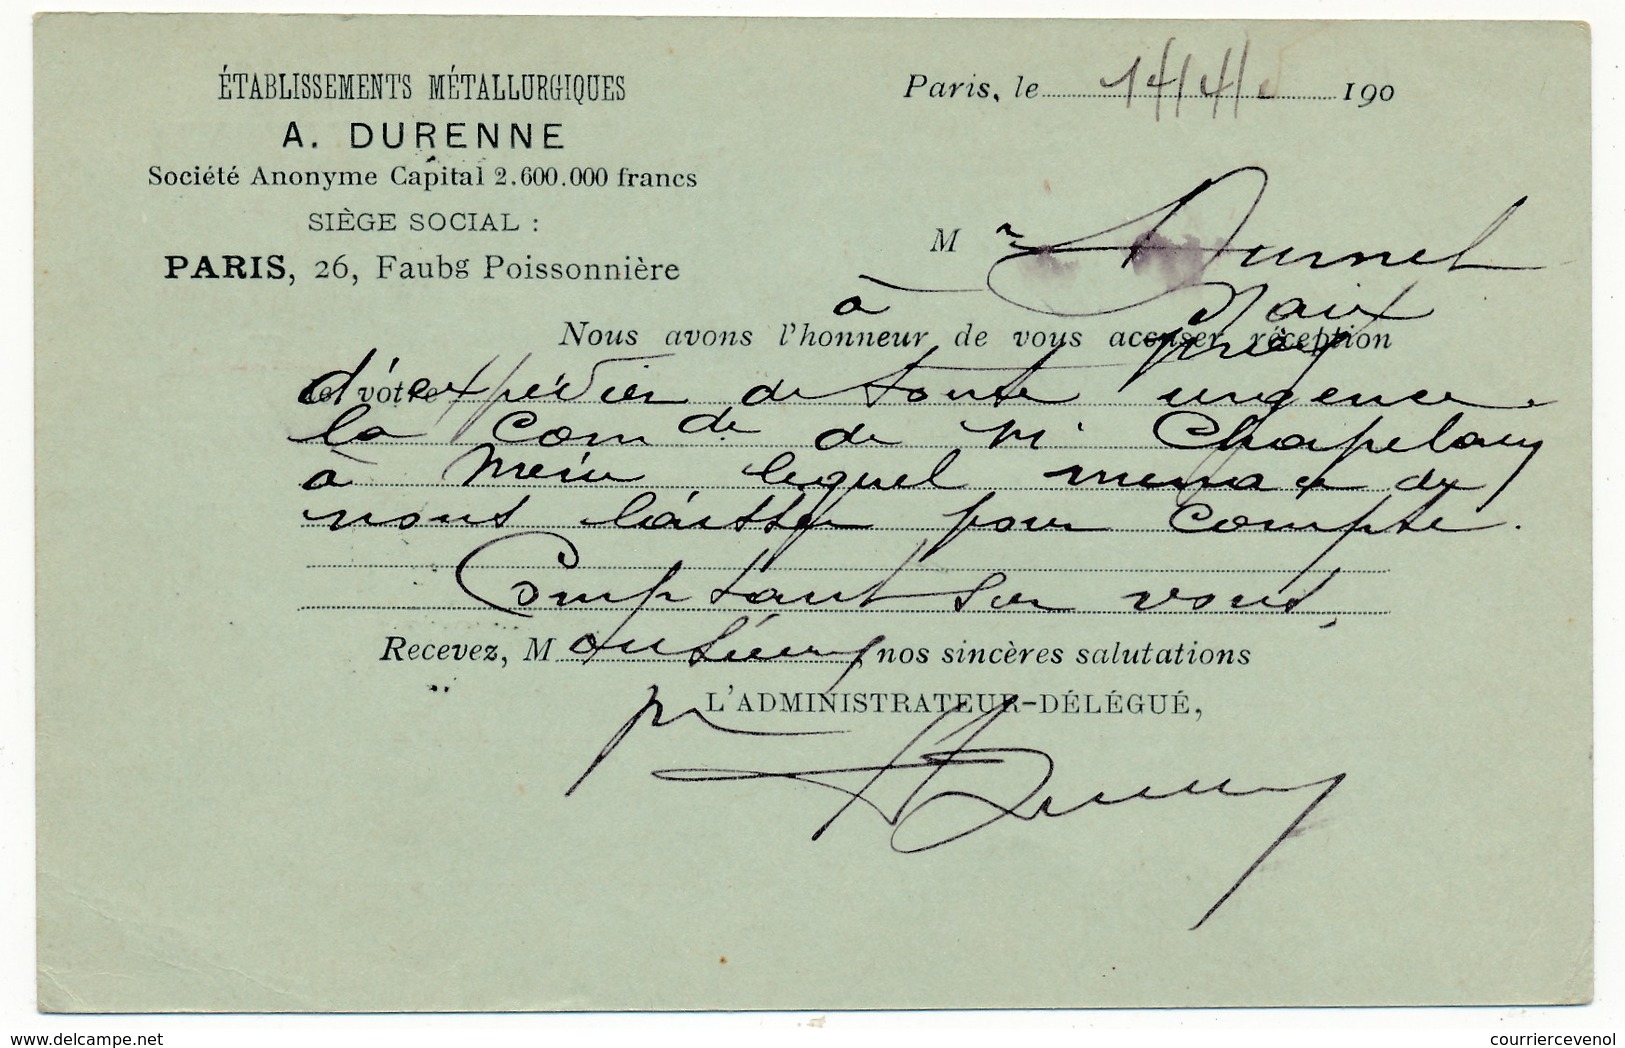 ÉTABLISSEMENTS MÉTALLURGIQUES
A. DURENNE
Société Anonyme Capital 2.600.000 francs
SIÈGE SOCIAL :
PARIS, 26, Faubg Poissonnière
Paris, le 14/4/5 190
M r
à
Nous avons l'honneur de vous accuser réception
prix
de votre
d'expédier de toute urgence.
la Comde de Mr Chapelany
à lequel menace de
nous laisser pour compte.
Comptant sur vous,
Recevez, Monsieur, nos sincères salutations
pr L'ADMINISTRATEUR-DÉLÉGUÉ,
delcampe.net
courriercevenol